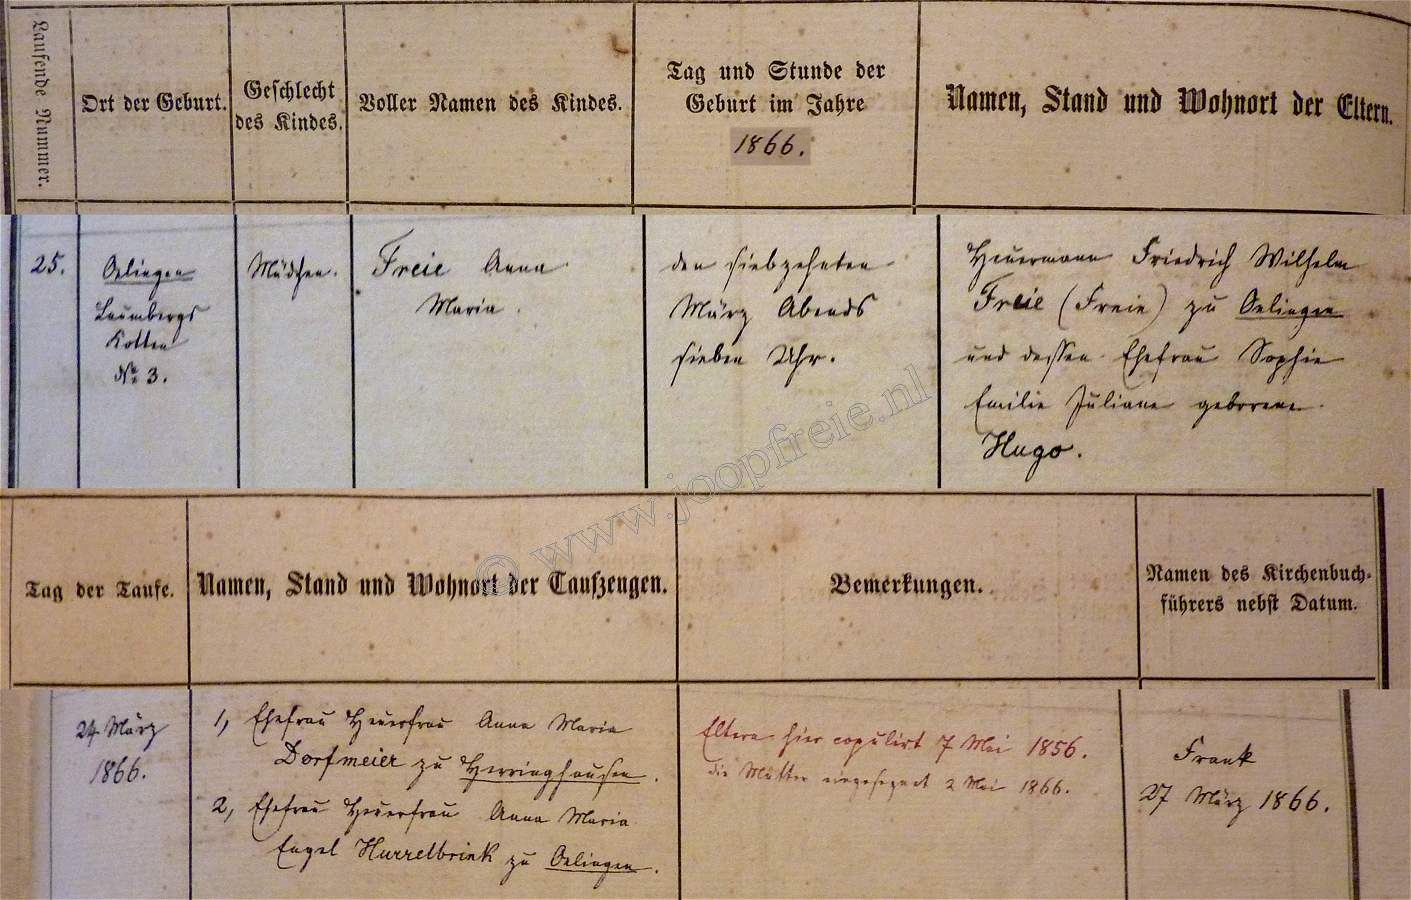 Laufende Nummer.
Ort der Geburt.
Geschlecht
des Kindes.
Voller Namen des Kindes.
Tag und Stunde der
Geburt im Jahre
1866.
Namen, Stand und Wohnort der Eltern.
25.
Oelingen
Leimbergs
Kotten
No 3.
Mädchen.
Freie Anna
Maria.
den siebzehnten
März Abends
sieben Uhr.
Heuermann Friedrich Wilhelm
Freie (Freie) zu Oelingen
und dessen Ehefrau Sophie
Emilie Juliane geborene
Hugo.
© www.joopfreie.nl
Tag der Taufe.
Namen, Stand und Wohnort der Taufzeugen.
Bemerkungen.
Namen des Kirchenbuch-
führers nebst Datum.
24 März
1866.
1, Ehefrau Heuerfrau Anna Maria
Dorfmeier zu Herringhausen.
2, Ehefrau Heuerfrau Anna Maria
Engel Hurrelbrink zu Oelingen.
Eltern hier copulirt 7 Mai 1856.
die Mutter eingesegnet 2 Mai 1866.
Frank
27 März 1866.